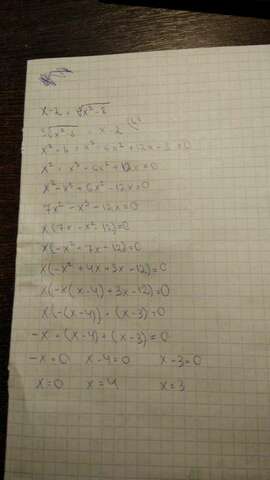 x-2 = ∛x²-8
∛x²-8 = x-2 |()³
x²-8 = x³-6x²+12x-8=0
x² = x³-6x²+12x=0
x²-x³+6x²-12x=0
7x²-x³-12x=0
x(7x-x²-12)=0
x(-x²+7x-12)=0
x(-x²+4x+3x-12)=0
x(-x(x-4)+3x-12)=0
x(-(x-4)·(x-3)=0
-x·(x-4)·(x-3)=0
-x=0 x-4=0 x-3=0
x=0 x=4 x=3